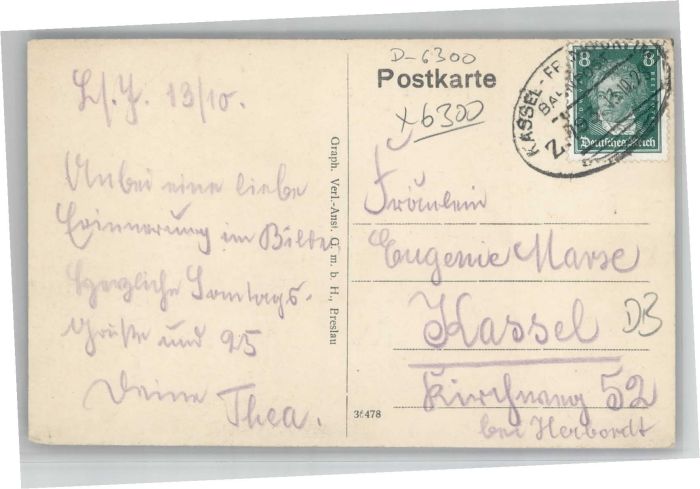 D-6300
Postkarte
x6300
KASSEL - FR
BAHNPOST
Z.
8 8
Deutsches Reich
13/10.
Anbei eine liebe
Erinnerung im Bilde
Herzliche Sontags-
Grüße und
Deine Thea.
Graph. Verl.-Anst. G. m. b. H., Breslau
36478
Fräulein
Eugenie Marse
Kassel
DB
Kirchweg 52
bei Herbordt